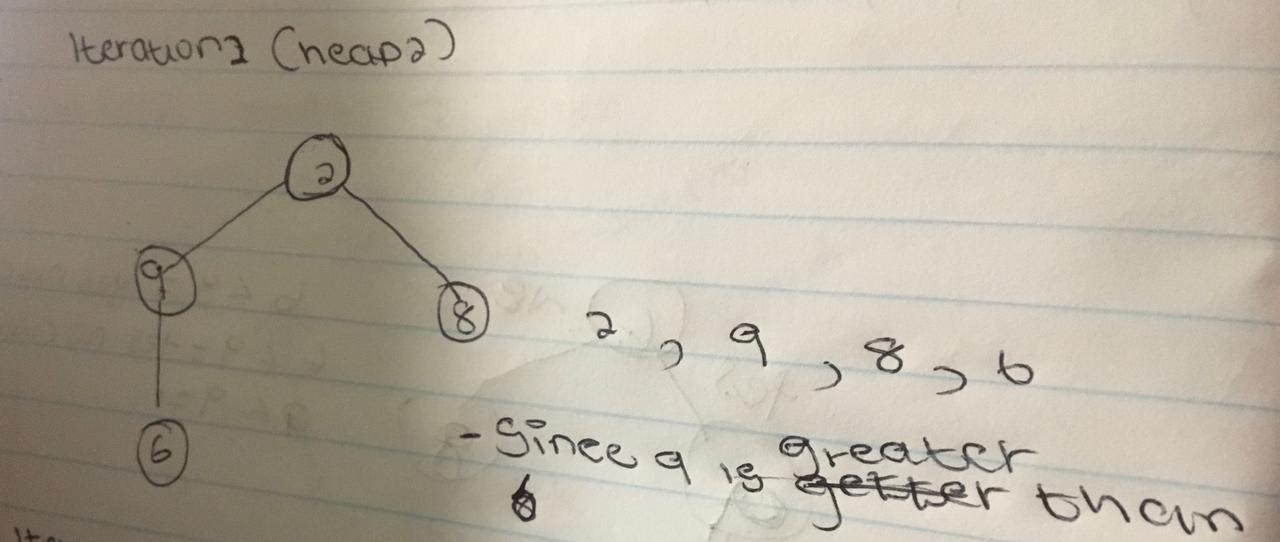 Iteration2 (heap2)
2
9
8
2, 9, 8, 6
6
- Since 9 is greater
getter than
6